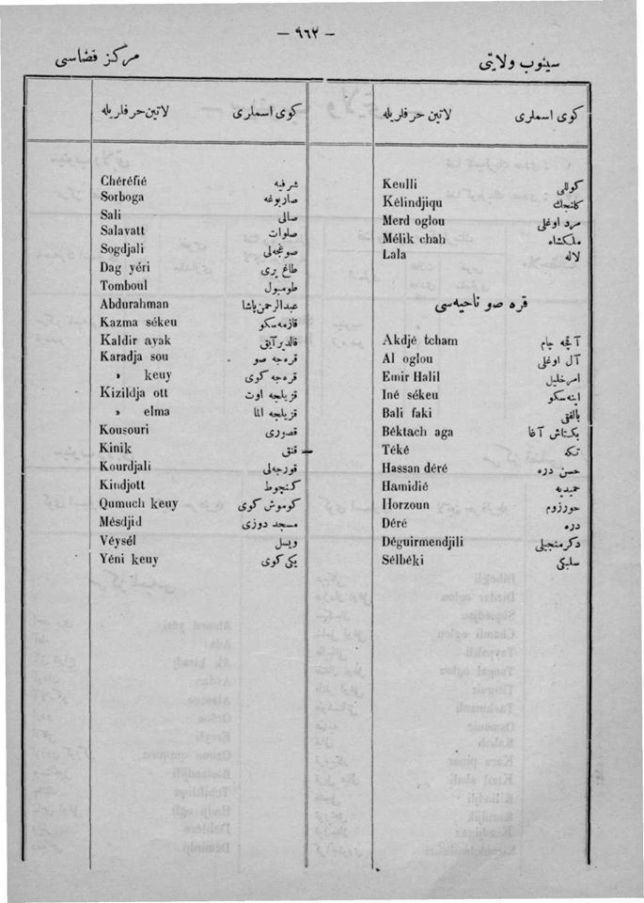 — ٩٦٢ —
سينوب ولايتى
مركز قضاسى
كوى اسملرى لاتين حرفلريله
كوللى Keulli
كلنجك Kélindjiqu
مرد اوغلى Merd oglou
ملكشاه Mélik chah
لاله Lala
قره صو ناحيه‌سى
آقچه چام Akdjé tcham
آل اوغلى Al oglou
امير خليل Emir Halil
اينه سكو Iné sékeu
بالفقى Bali faki
بكتاش آغا Béktach aga
تكه Téké
حسن دره Hassan déré
حميديه Hamidié
حورزوم Horzoun
دره Déré
دكرمنجيلى Déguirmendjili
سلبكى Sélbéki
كوى اسملرى لاتين حرفلريله
شرفيه Chéréfié
صاربوغه Sorboga
صالى Sali
صلوات Salavatt
صوغجه‌لى Sogdjali
طاغ يرى Dag yéri
طومبول Tomboul
عبدالرحمن پاشا Abdurahman
قازمه‌سكو Kazma sékeu
قالدير آياق Kaldir ayak
قره‌جه صو Karadja sou
قره‌جه كوى » keuy
قزيلجه اوت Kizildja ott
قزيلجه الما » elma
قصورى Kousouri
قنق Kinik
قورجه‌لى Kourdjali
كنجوط Kindjott
كوموش كوى Qumuch keuy
مسجد دوزى Mésdjid
ويسل Véysél
يكى كوى Yéni keuy